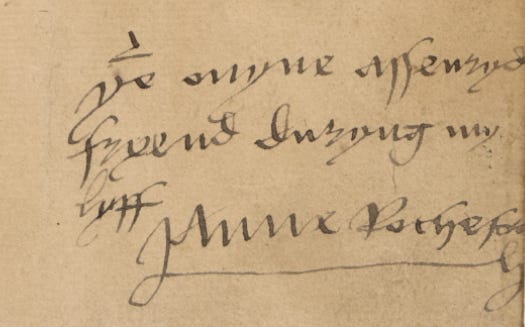 yʳ owyne asseuryd
fryend duryng my
lyff Anne Rochefor